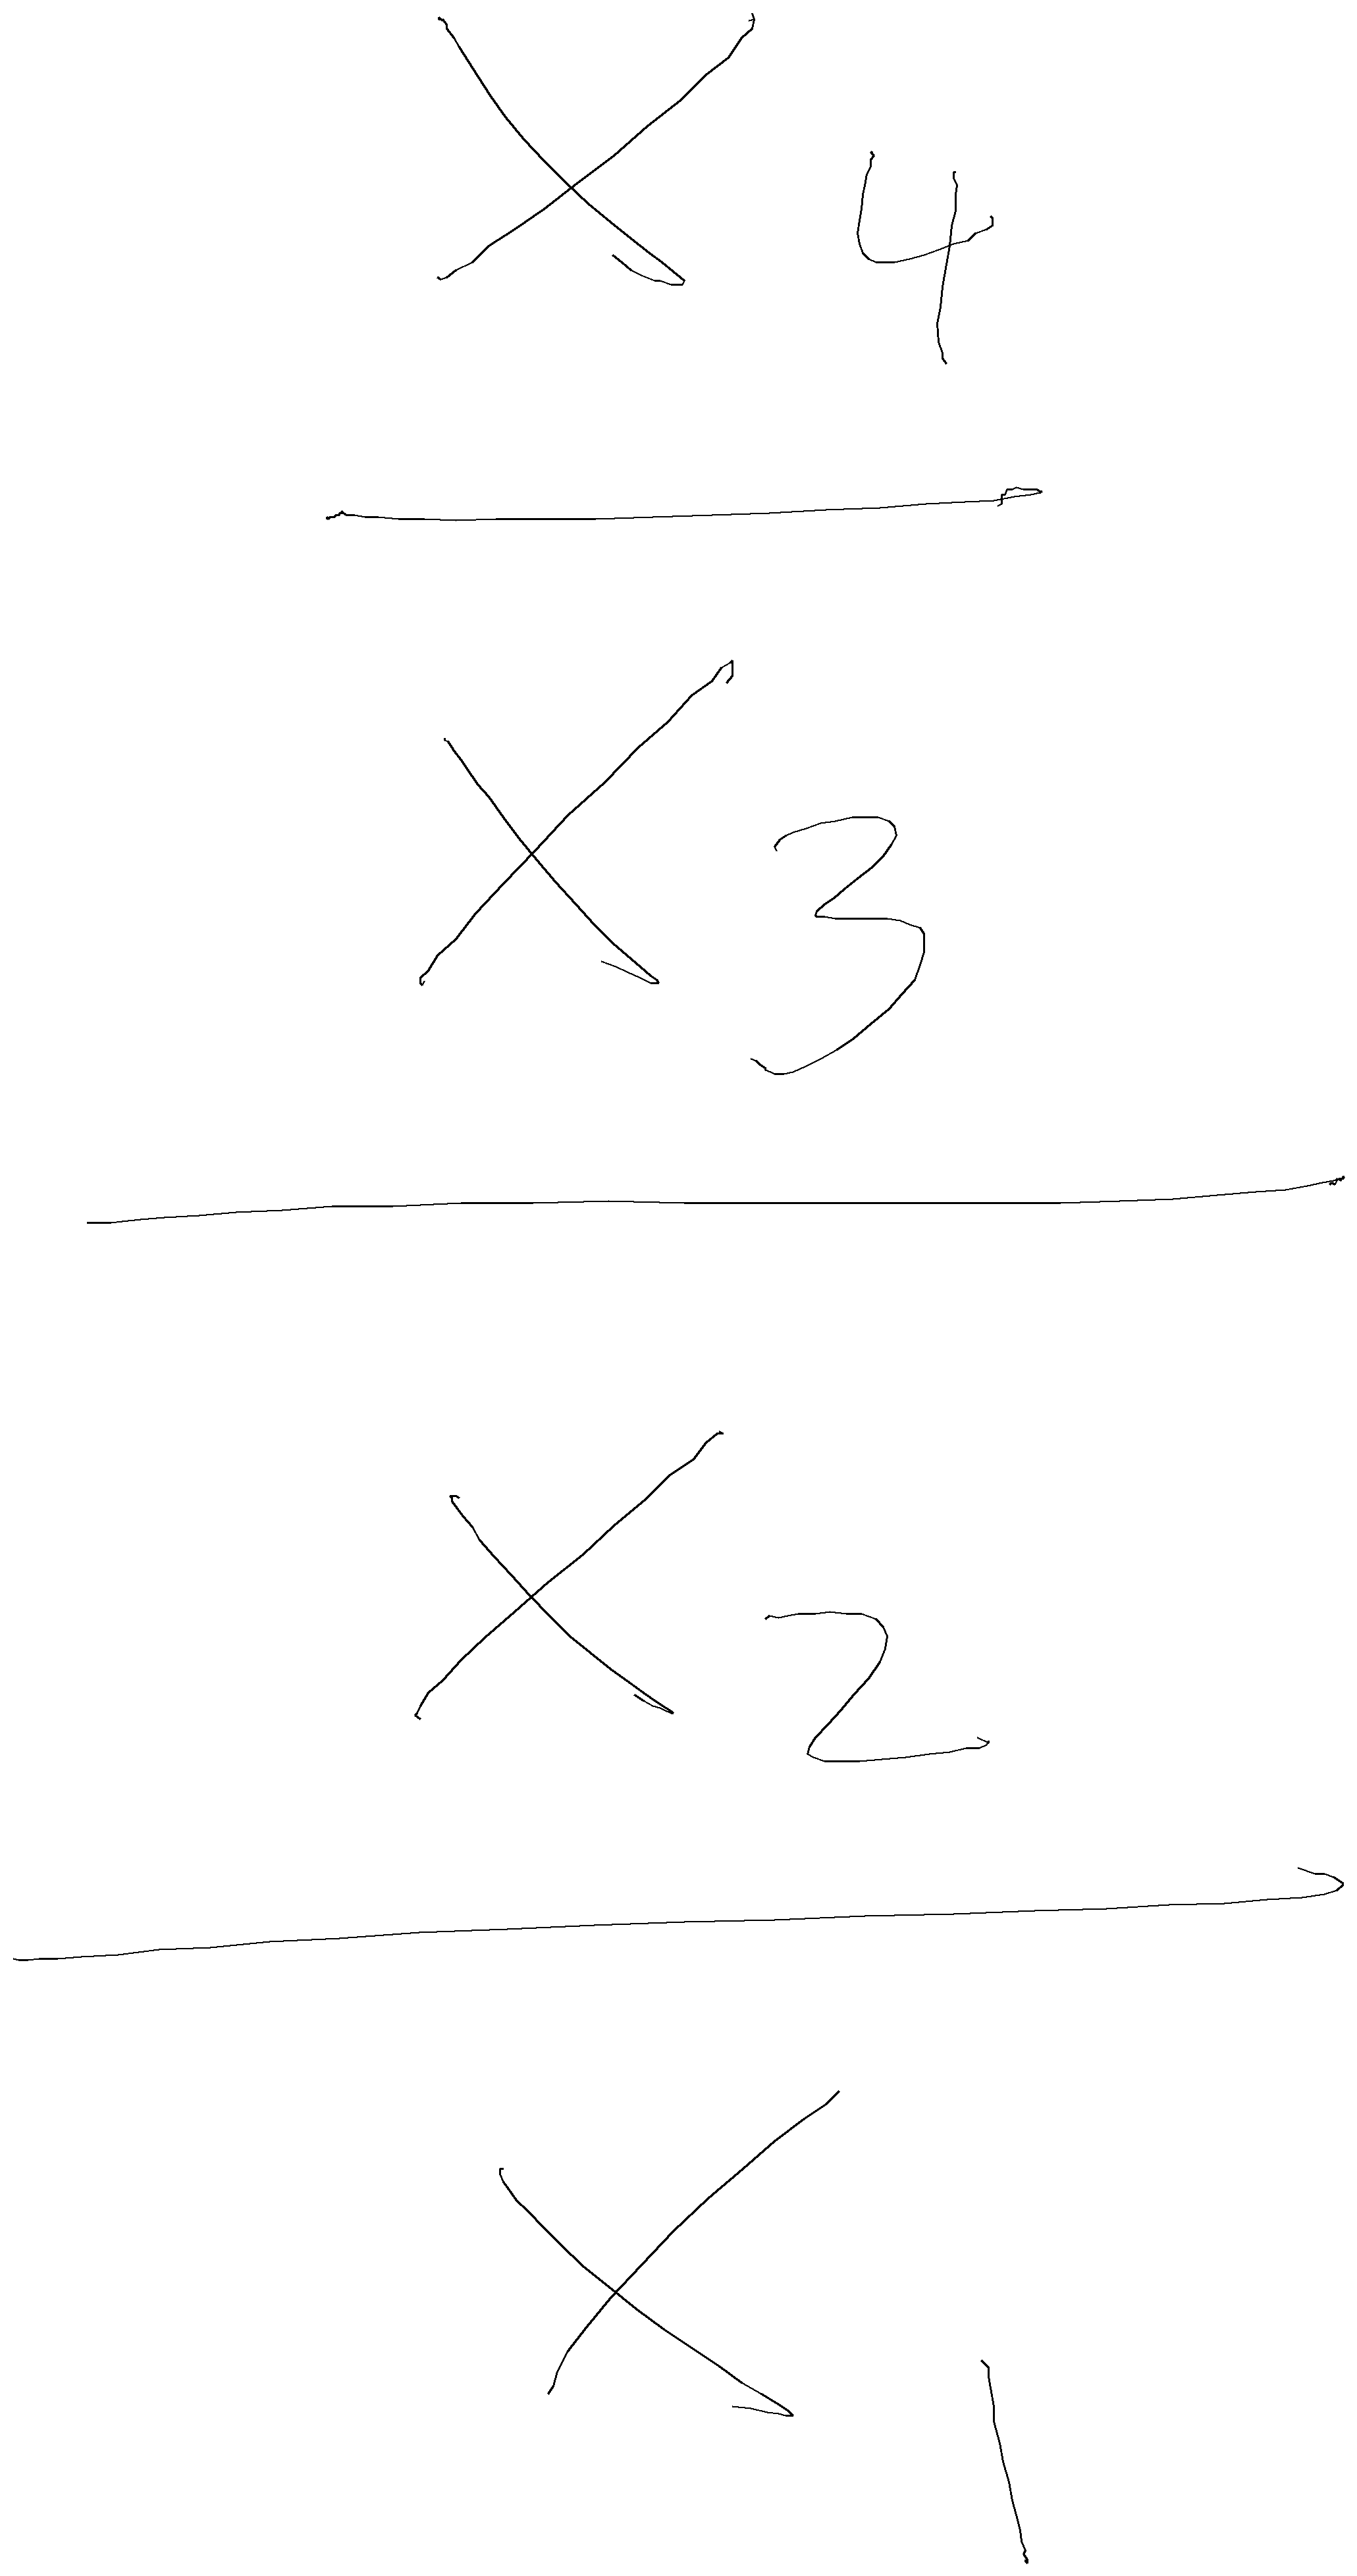 X4
X3
X2
X1